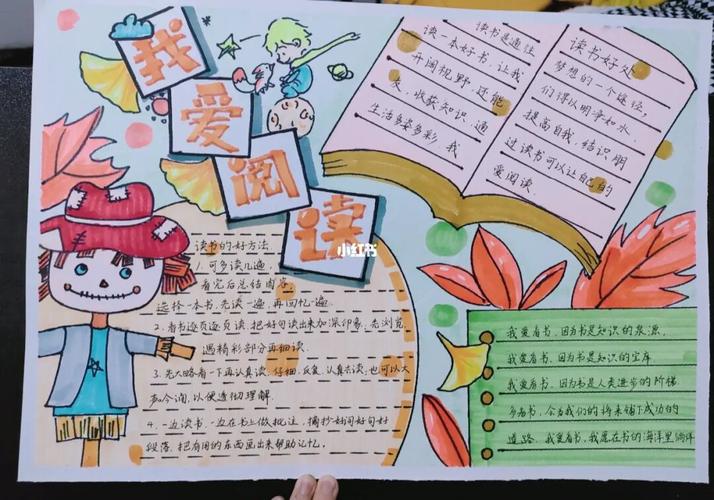 我爱阅读
读书好处
读书是通往
梦想的一个途径,
读一本好书,让我
们得以明净如水,
开阔视野,还能
提高自我,结识朋
友,收获知识,通
过读书可以让自己的
生活多姿多彩,我
爱阅读.
小红书
读书的好方法
1.可多读几遍,
看完后总结内容
选择一本书,先读一遍,再回忆一遍.
2.看书逐页逐页读,把好句读出来加深印象,先浏览,
遇精彩部分再细读.
3.先大略看一下再认真读.仔细、反复、认真去读;也可以大
声念诵,以便透彻理解.
4.一边读书,一边在书上做批注,摘抄好词好句好
段落,把有用的东西画出来帮助记忆.
我爱看书,因为书是知识的泉源,
我爱看书,因为书是知识的宝库
我爱看书,因为书是人类进步的阶梯
多看书,会为我们的将来铺下成功的
道路.我爱看书,我愿在书的海洋里徜徉